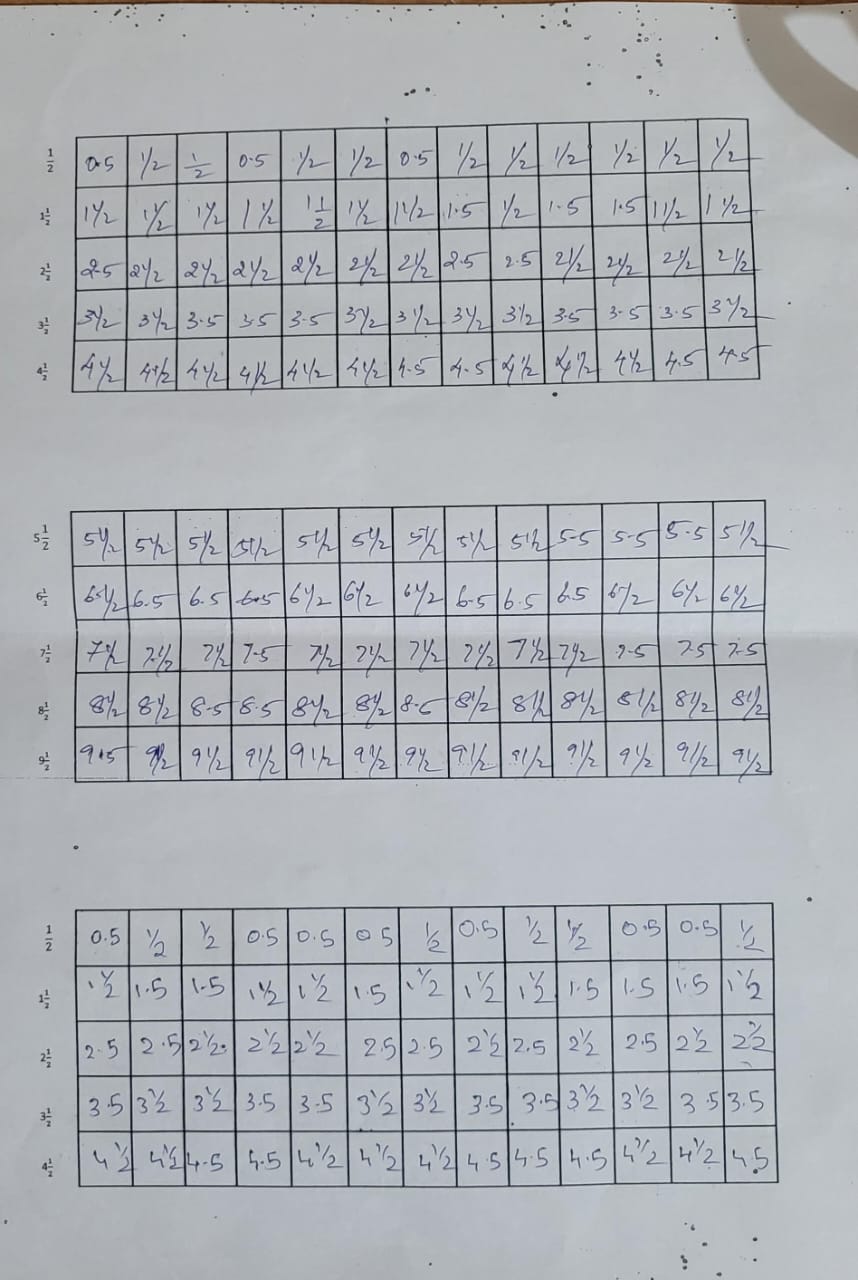 1/2 0.5 1/2 1/2 0.5 1/2 1/2 0.5 1/2 1/2 1/2 1/2 1/2 1/2
1 1/2 1 1/2 1 1/2 1 1/2 1 1/2 1 1/2 1 1/2 1 1/2 1.5 1/2 1.5 1.5 1 1/2 1 1/2
2 1/2 2.5 2 1/2 2 1/2 2 1/2 2 1/2 2 1/2 2 1/2 2.5 2.5 2 1/2 2 1/2 2 1/2 2 1/2
3 1/2 3 1/2 3 1/2 3.5 3.5 3.5 3 1/2 3 1/2 3 1/2 3 1/2 3.5 3.5 3.5 3 1/2
4 1/2 4 1/2 4 1/2 4 1/2 4 1/2 4 1/2 4 1/2 4.5 4.5 4 1/2 4 1/2 4 1/2 4.5 4.5
5 1/2 5 1/2 5 1/2 5 1/2 5 1/2 5 1/2 5 1/2 5 1/2 5 1/2 5 1/2 5.5 5.5 5.5 5 1/2
6 1/2 6 1/2 6.5 6.5 6.5 6 1/2 6 1/2 6 1/2 6.5 6.5 6.5 6 1/2 6 1/2 6 1/2
7 1/2 7 1/2 7 1/2 7 1/2 7.5 7 1/2 7 1/2 7 1/2 7 1/2 7 1/2 7 1/2 7.5 7.5 7.5
8 1/2 8 1/2 8 1/2 8.5 8.5 8 1/2 8 1/2 8.5 8 1/2 8 1/2 8 1/2 8 1/2 8 1/2 8 1/2
9 1/2 9.5 9 1/2 9 1/2 9 1/2 9 1/2 9 1/2 9 1/2 9 1/2 9 1/2 9 1/2 9 1/2 9 1/2 9 1/2
1/2 0.5 1/2 1/2 0.5 0.5 0.5 1/2 0.5 1/2 1/2 0.5 0.5 1/2
1 1/2 1 1/2 1.5 1.5 1 1/2 1 1/2 1.5 1 1/2 1 1/2 1 1/2 1.5 1.5 1.5 1 1/2
2 1/2 2.5 2.5 2 1/2 2 1/2 2 1/2 2.5 2.5 2 1/2 2.5 2 1/2 2.5 2 1/2 2 1/2
3 1/2 3.5 3 1/2 3 1/2 3.5 3.5 3 1/2 3 1/2 3.5 3.5 3 1/2 3 1/2 3.5 3.5
4 1/2 4 1/2 4 1/2 4.5 4.5 4 1/2 4 1/2 4 1/2 4.5 4.5 4.5 4 1/2 4 1/2 4.5